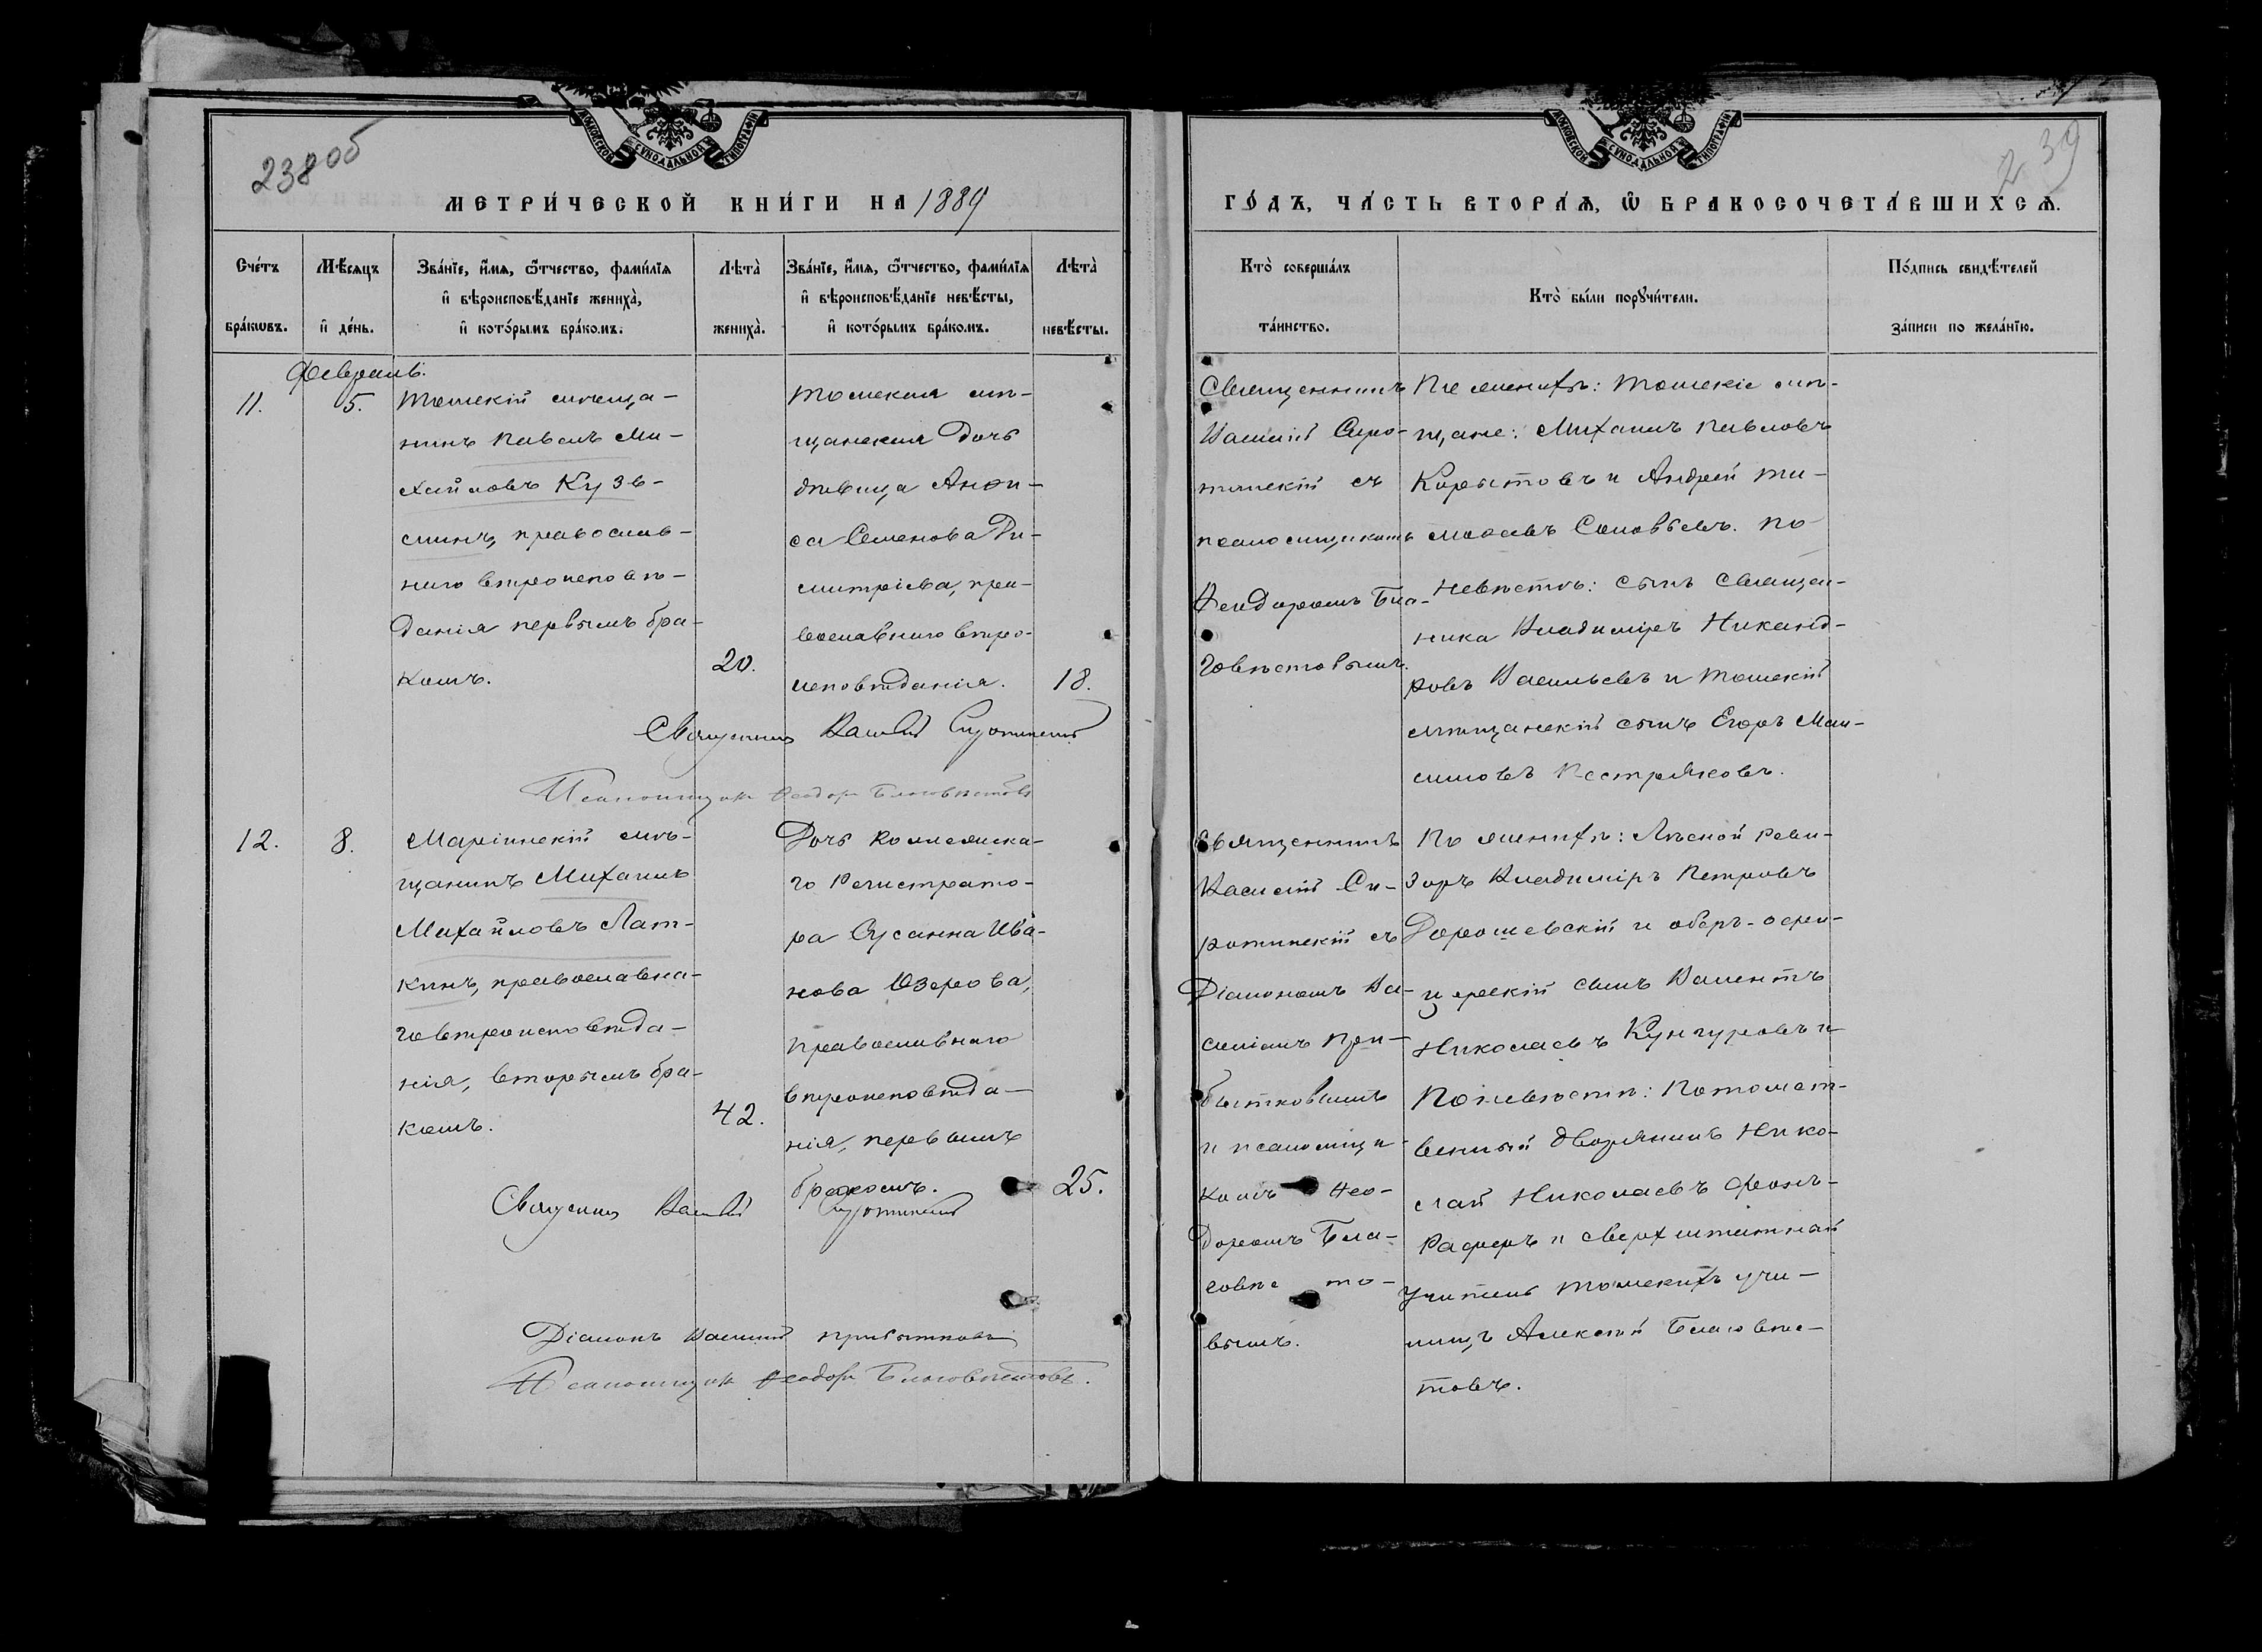 238 об
239
МОСКОВСКОЙ СѴНОДАЛЬНОЙ ТИПОГРАФІИ
МОСКОВСКОЙ СѴНОДАЛЬНОЙ ТИПОГРАФІИ
МЕТРИ́ЧЕСКОЙ КНИ́ГИ НА 1889
ГО́ДЪ, ЧА́СТЬ ВТОРА́Ѧ, Ѡ БРАКОСОЧЕТА́ВШИХСѦ.
Сче́тъ
бра́кѡвъ.
Мѣ́сяцъ
и҆ де́нь.
Зва́нїе, и҆́мѧ, ѻ҆́тчество, фами́лїѧ
и҆ вѣроисповѣ́данїе жениха̀,
и҆ кото́рымъ бра́комъ.
Лѣта̀
жениха̀.
Зва́нїе, и҆́мѧ, ѻ҆́тчество, фами́лїѧ
и҆ вѣроисповѣ́данїе невѣ́сты,
и҆ кото́рымъ бра́комъ.
Лѣта̀
невѣ́сты.
Кто̀ соверша́лъ
та́инство.
Кто̀ бы́ли порꙋчи́тели.
По́дпись свидѣ́телей
за́писи по жела́нїю.
Февраль.
11.
5.
Томскій мѣща-
нинъ Павелъ Ми-
хайловъ Кузь-
минъ, православ-
наго вѣроисповѣ-
данія первымъ бра-
комъ.
20.
Томская мѣ-
щанская дочь
дѣвица Анфи-
са Семенова Ди-
митріева, пра-
вославнаго вѣро-
исповѣданія.
18.
Священникъ
Василій Сиро-
тинскій съ
псаломщикомъ
Ѳеодоромъ Бла-
говѣстовымъ.
По женихѣ: Томскіе мѣ-
щане: Михаилъ Павловъ
Корытовъ и Андрей Ти-
моѳеевъ Соловьевъ. По
невѣстѣ: сынъ священ-
ника Владиміръ Никанд-
ровъ Васильевъ и Томскій
мѣщанскій сынъ Егоръ Мак-
симовъ Пестряковъ.
Священникъ Василій Сиротинскій
Псаломщикъ Ѳеодоръ Благовѣстовъ
12.
8.
Маріинскій мѣ-
щанинъ Михаилъ
Михайловъ Лат-
кинъ, православна-
го вѣроисповѣда-
нія, вторымъ бра-
комъ.
42.
Дочь коллежска-
го Регистрато-
ра Сусанна Ива-
нова Озерова,
православнаго
вѣроисповѣда-
нія, первымъ
бракомъ.
25.
Священникъ
Василій Си-
ротинскій съ
Діакономъ Ва-
силіемъ При-
бытковымъ
и псаломщи-
комъ Ѳео-
доромъ Бла-
говѣсто-
вымъ.
По женихѣ: Лѣсной реви-
зоръ Владиміръ Петровъ
Дорошевскій и оберъ-офи-
церскій сынъ Валентъ
Николаевъ Кунгуровъ и
По невѣстѣ: Потомст-
венный дворянинъ Нико-
лай Николаевъ фонъ-
Раферъ и сверхштатный
учитель Томскихъ учи-
лищъ Алексѣй Благовѣс-
товъ.
Священникъ Василій Сиротинскій
Діаконъ Василій Прибытковъ
Псаломщикъ Ѳеодоръ Благовѣстовъ.